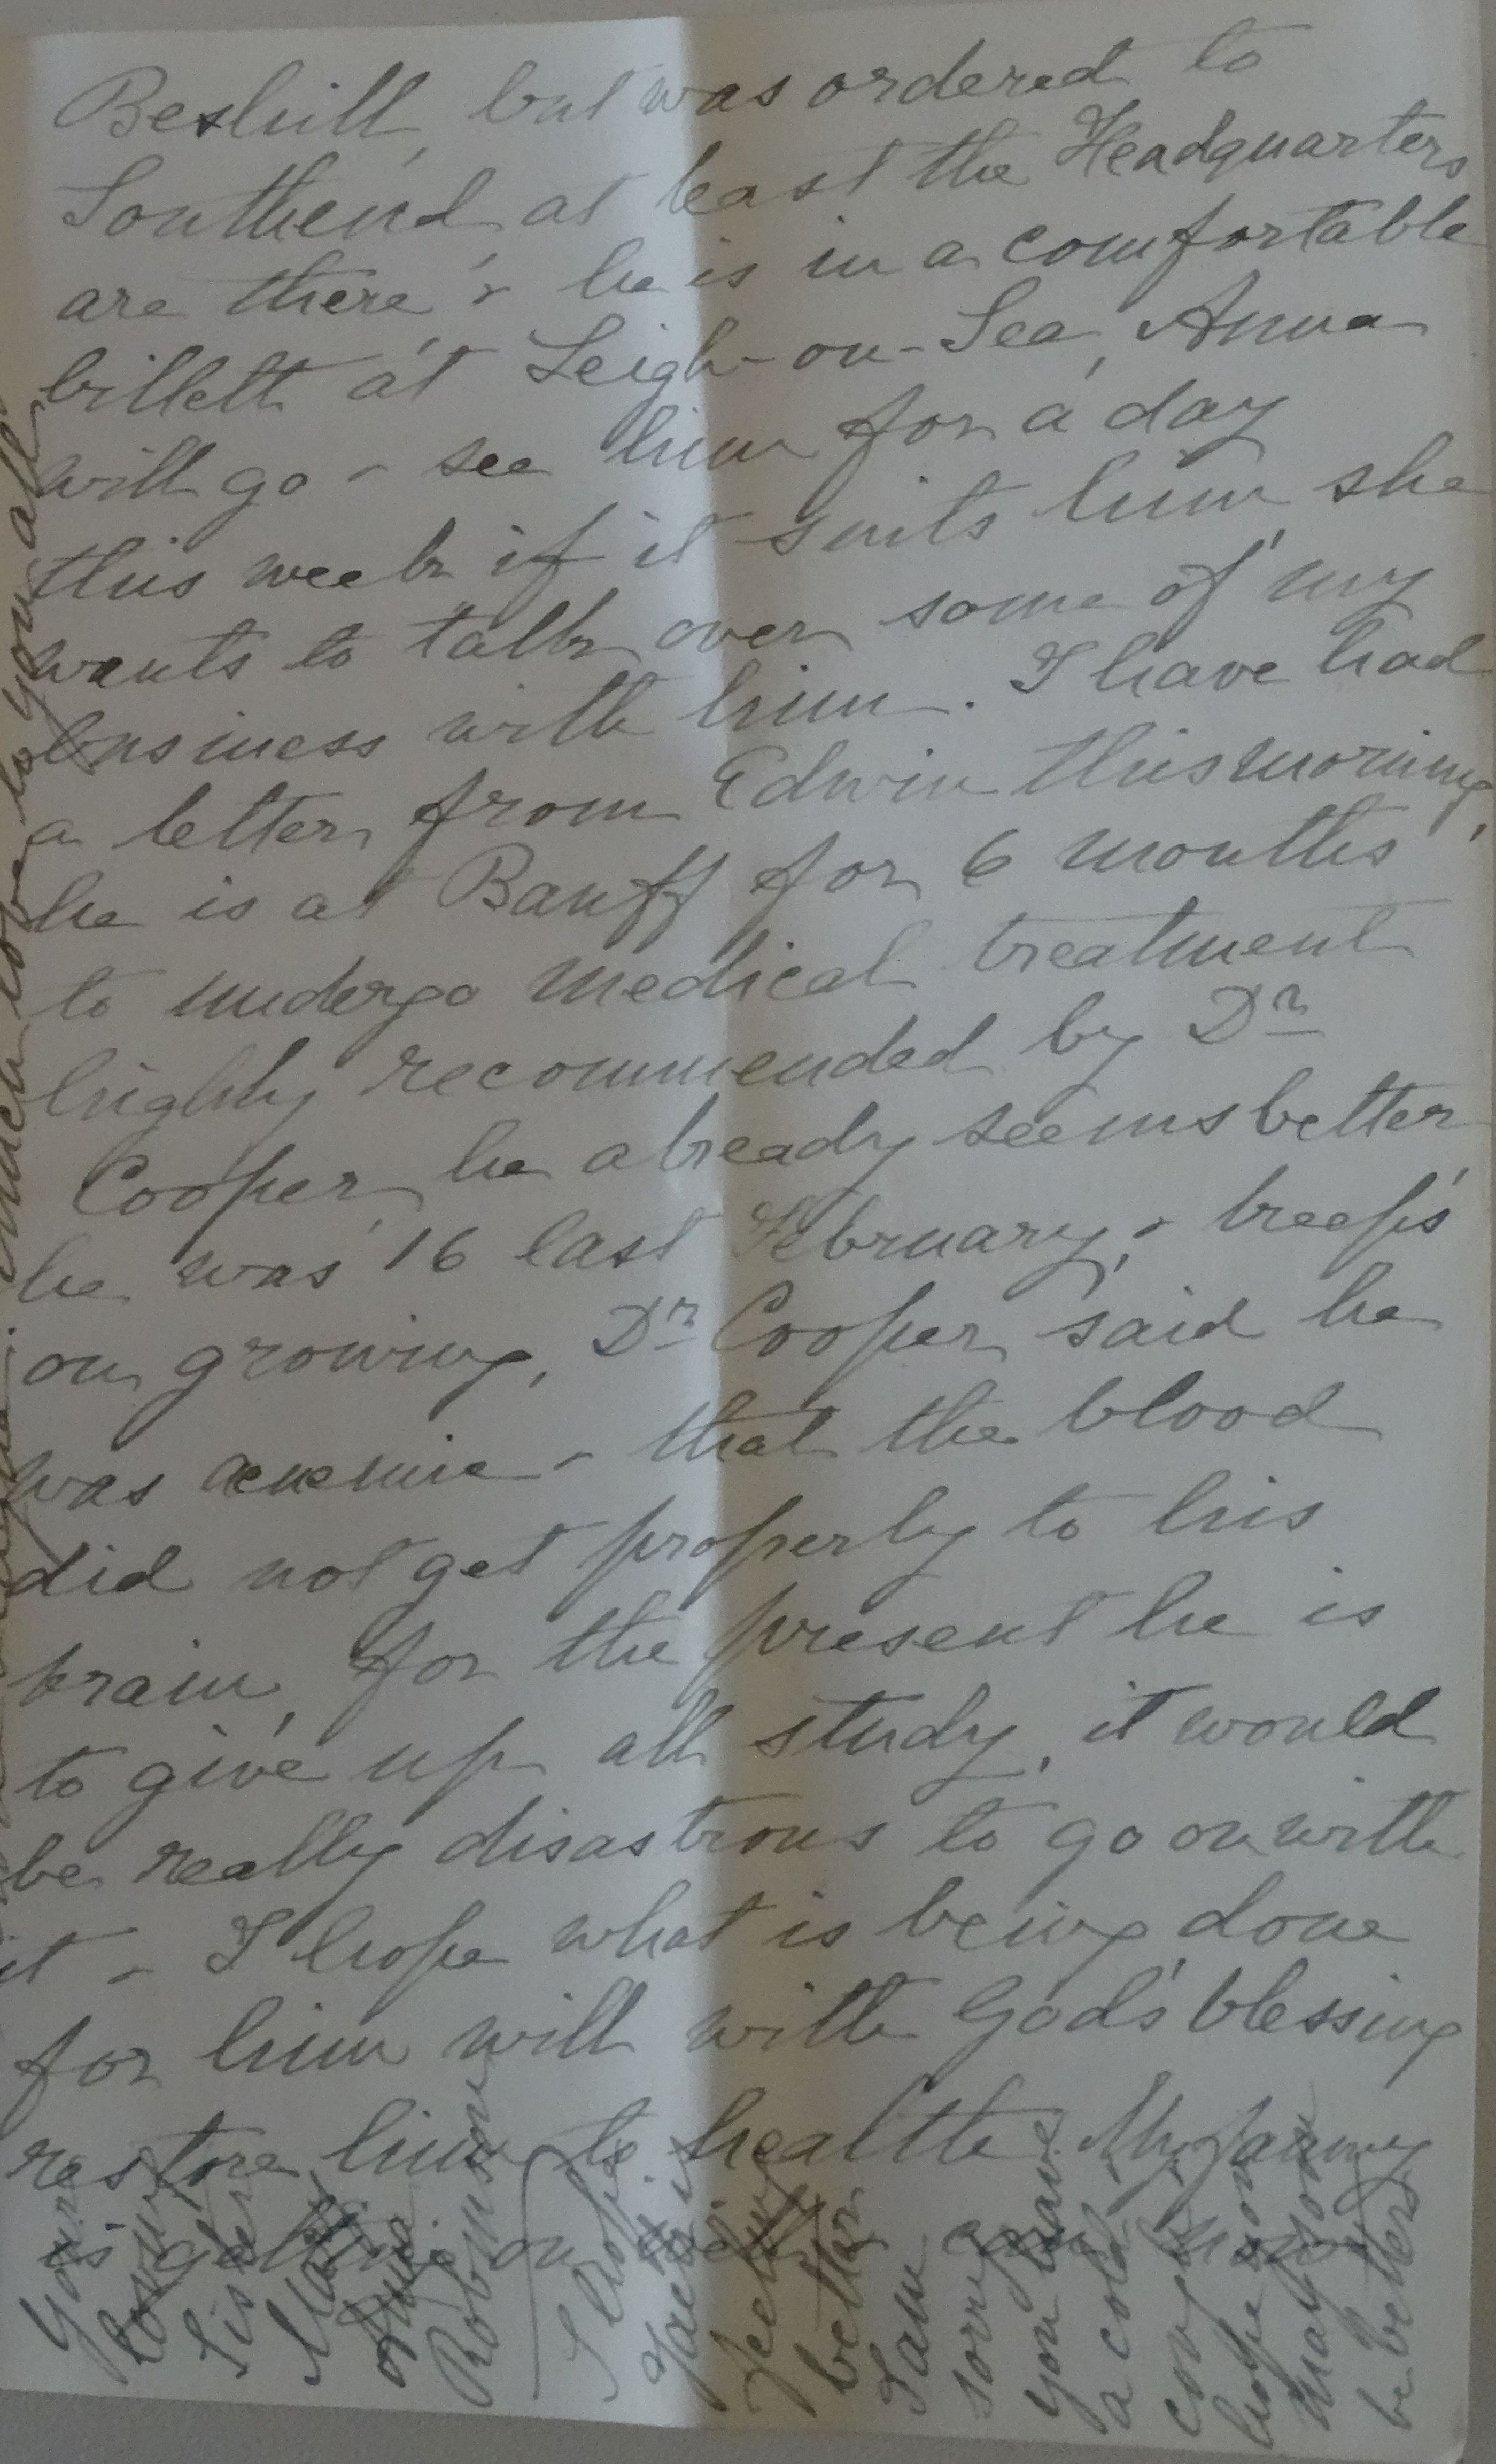 Bexhill, but was ordered to
Southend at least the Headquarters
are there & he is in a comfortable
billett at Leigh-on-Sea, Anna
will go & see him for a day
this week if it suits him, she
wants to talk over some of my
business with him. I have had
a letter from Edwin this morning,
he is at Banff for 6 months
to undergo medical treatment
highly recommended by Dr
Cooper, he already seems better
he was 16 last February, & keeps
on growing, Dr Cooper said he
was anemic & that the blood
did not get properly to his
brain, for the present he is
to give up all study, it would
be really disastrous to go on with
it & I hope what is being done
for him will with God's blessing
restore him to health. My
is getting on well
I hope
is
feeling
better
I am
sorry
you have
a cold &
cough
hope soon
may you
be better
Your
loving
Sister
Mary
Anna
Robinson
much love to you all